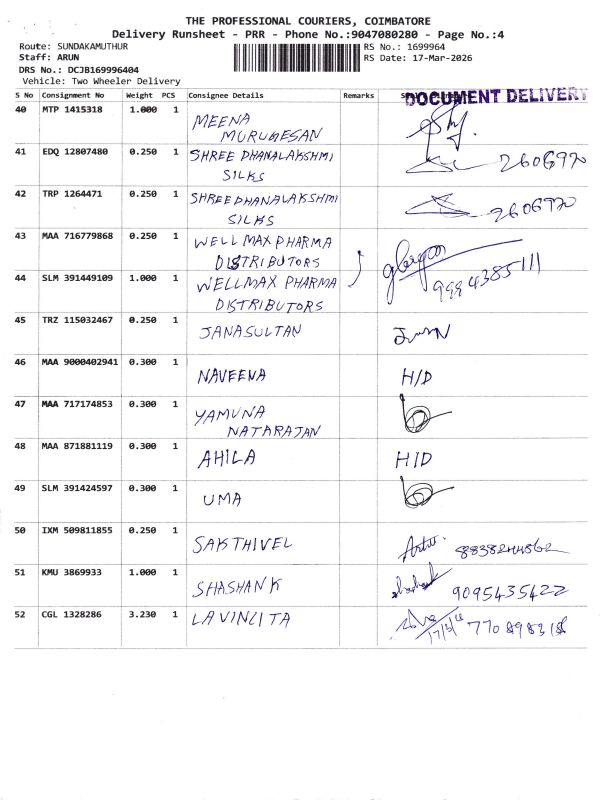 THE PROFESSIONAL COURIERS, COIMBATORE
Delivery Runsheet - PRR - Phone No.:9047080280 - Page No.:4
Route: SUNDAKAMUTHUR RS No.: 1699964
Staff: ARUN RS Date: 17-Mar-2026
DRS No.: DCJB169996404
Vehicle: Two Wheeler Delivery
S No Consignment No Weight PCS Consignee Details Remarks
DOCUMENT DELIVERY
40 MTP 1415318 1.000 1 MEENA
MURUGESAN
41 EDQ 12807480 0.250 1 SHREE DHANALAKSHMI
SILKS 2606970
42 TRP 1264471 0.250 1 SHREE DHANALAKSHMI
SILKS 2606970
43 MAA 716779868 0.250 1 WELL MAX PHARMA
DISTRIBUTORS
44 SLM 391449109 1.000 1 WELLMAX PHARMA
DISTRIBUTORS 9994385111
45 TRZ 115032467 0.250 1 JANASULTAN
46 MAA 9000402941 0.300 1 NAVEENA H/D
47 MAA 717174853 0.300 1 YAMUNA
NATARAJAN
48 MAA 871881119 0.300 1 AHILA H/D
49 SLM 391424597 0.300 1 UMA
50 IXM 509811855 0.250 1 SAKTHIVEL
51 KMU 3869933 1.000 1 SHASHANK 9095435422
52 CGL 1328286 3.230 1